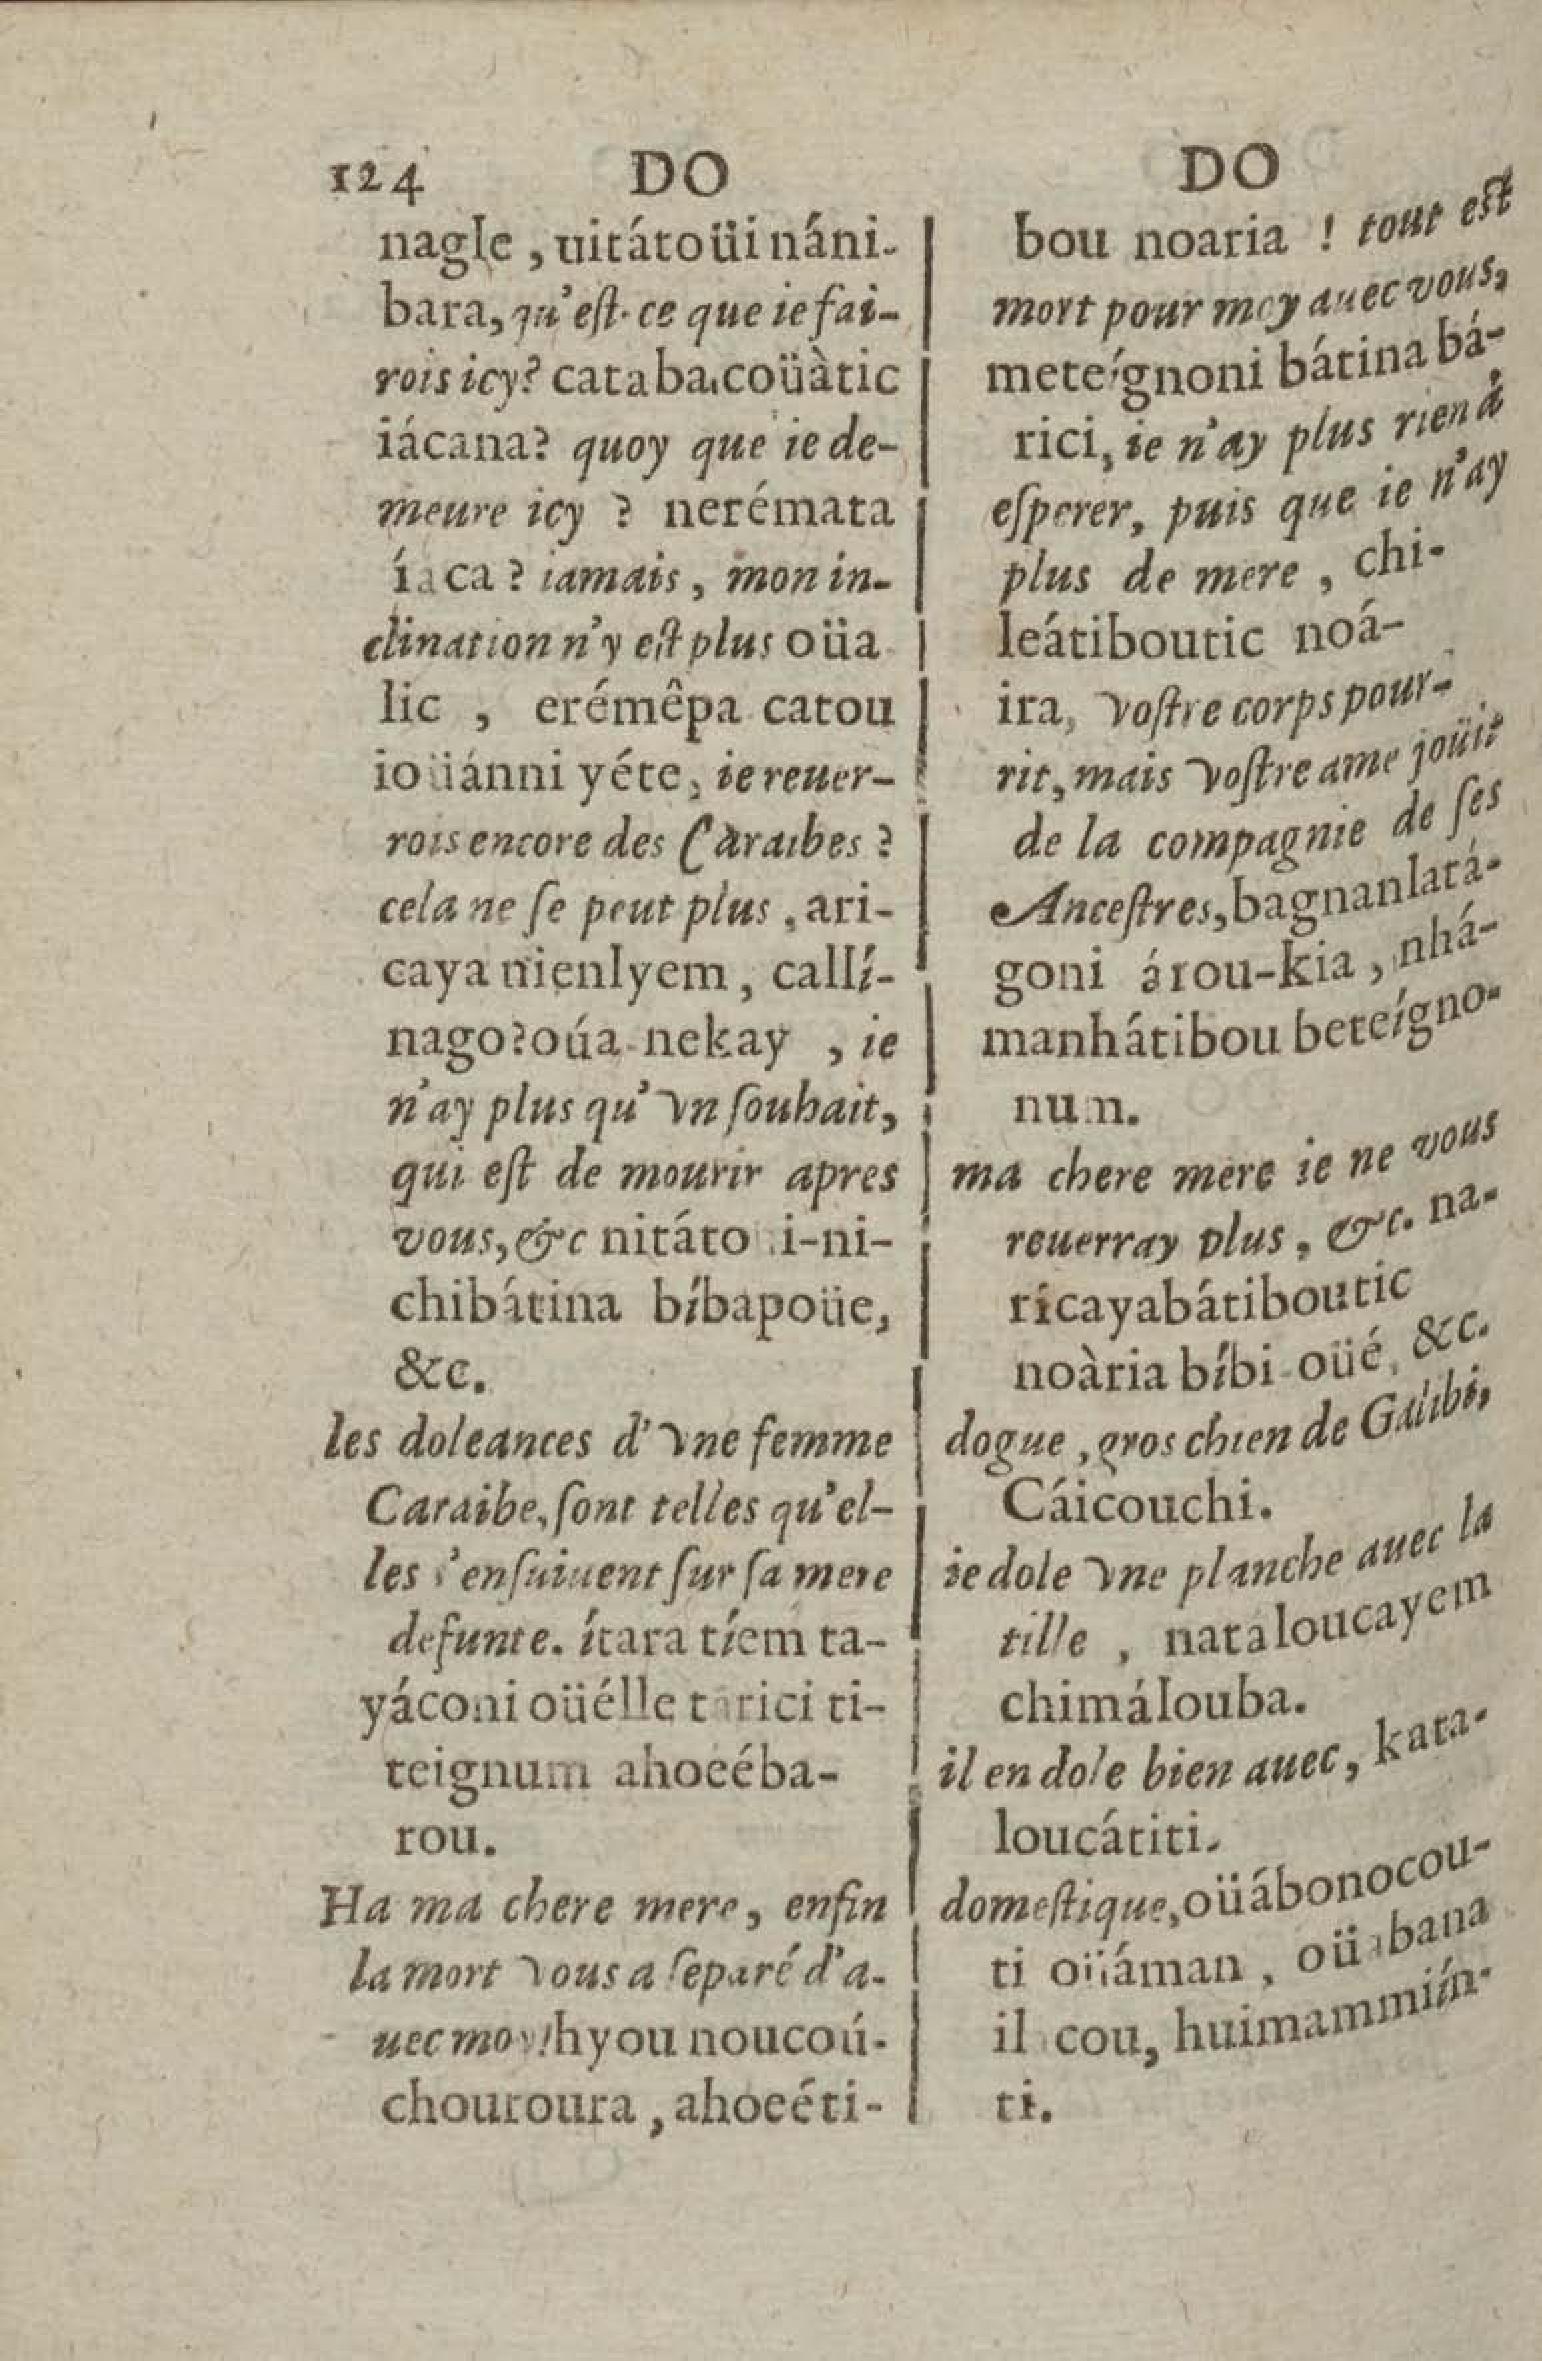 124 DO
nagle, uitátoüi náni-
bara, qu'eſt-ce que ie fai-
rois icy? cataba.coüàtic
iácana? quoy que ie de-
meure icy ? nerémata
íaca ? iamais, mon in-
clination n'y eſt plus oüa
lic , erémêpa catou
ioüánni yéte, ie reuer-
rois encore des Caraibes ?
cela ne ſe peut plus, ari-
caya nienlyem, callí-
nago? oúa-nekay , ie
n'ay plus qu'vn ſouhait,
qui eſt de mourir apres
vous, &c nitáto i-ni-
chibátina bíbapoüe,
&c.
les doleances d'vne femme
Caraibe, ſont telles qu'el-
les s'enſuiuent ſur ſa mere
defunte. ítara tíem ta-
yáconi oüélle tarici ti-
teignum ahoeéba-
rou.
Ha ma chere mere, enfin
la mort vous a ſeparé d'a-
uec moy! hyou noucoú-
chouroura, ahoeéti-
DO
bou noaria ! tout eſt
mort pour moy auec vous,
meteígnoni bátina bá-
rici, ie n'ay plus rien à
eſperer, puis que ie n'ay
plus de mere , chi-
leátiboutic noá-
ira, voſtre corps pour-
rit, mais voſtre ame joüit
de la compagnie de ſes
Anceſtres, bagnanlatá-
goni árou-kia, nhá-
manhátibou beteígno-
num.
ma chere mere ie ne vous
reuerray plus, &c. na-
rícayabátiboutic
noària bíbi-oüé, &c.
dogue, gros chien de Galibi,
Cáicouchi.
ie dole vne planche auec la
tille , nataloucayem
chimálouba.
il en dole bien auec, kata-
loucátiti.
domeſtique, oüábonocou-
ti oüáman, oüabana
il cou, huimammiín-
ti.